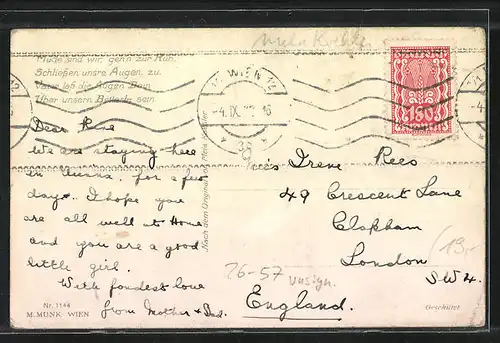 Müde sind wir, geh'n zur Ruh,
Schließen unsre Augen zu.
Vater laß die Augen Dein
Über unsern Betten sein
WIEN
-4. IX. 16
180
Dear Rene
We are staying here
in Vienna for a few
days. I hope you
are all well at Home
and you are a good
little girl.
With fondest love
from Mother & Dad.
Nach dem Original von
Irene Rees
49 Crescent Lane
Clapham
London
SW4.
England.
26-57
13,-
Nr. 1144
M. MUNK WIEN
Geschützt